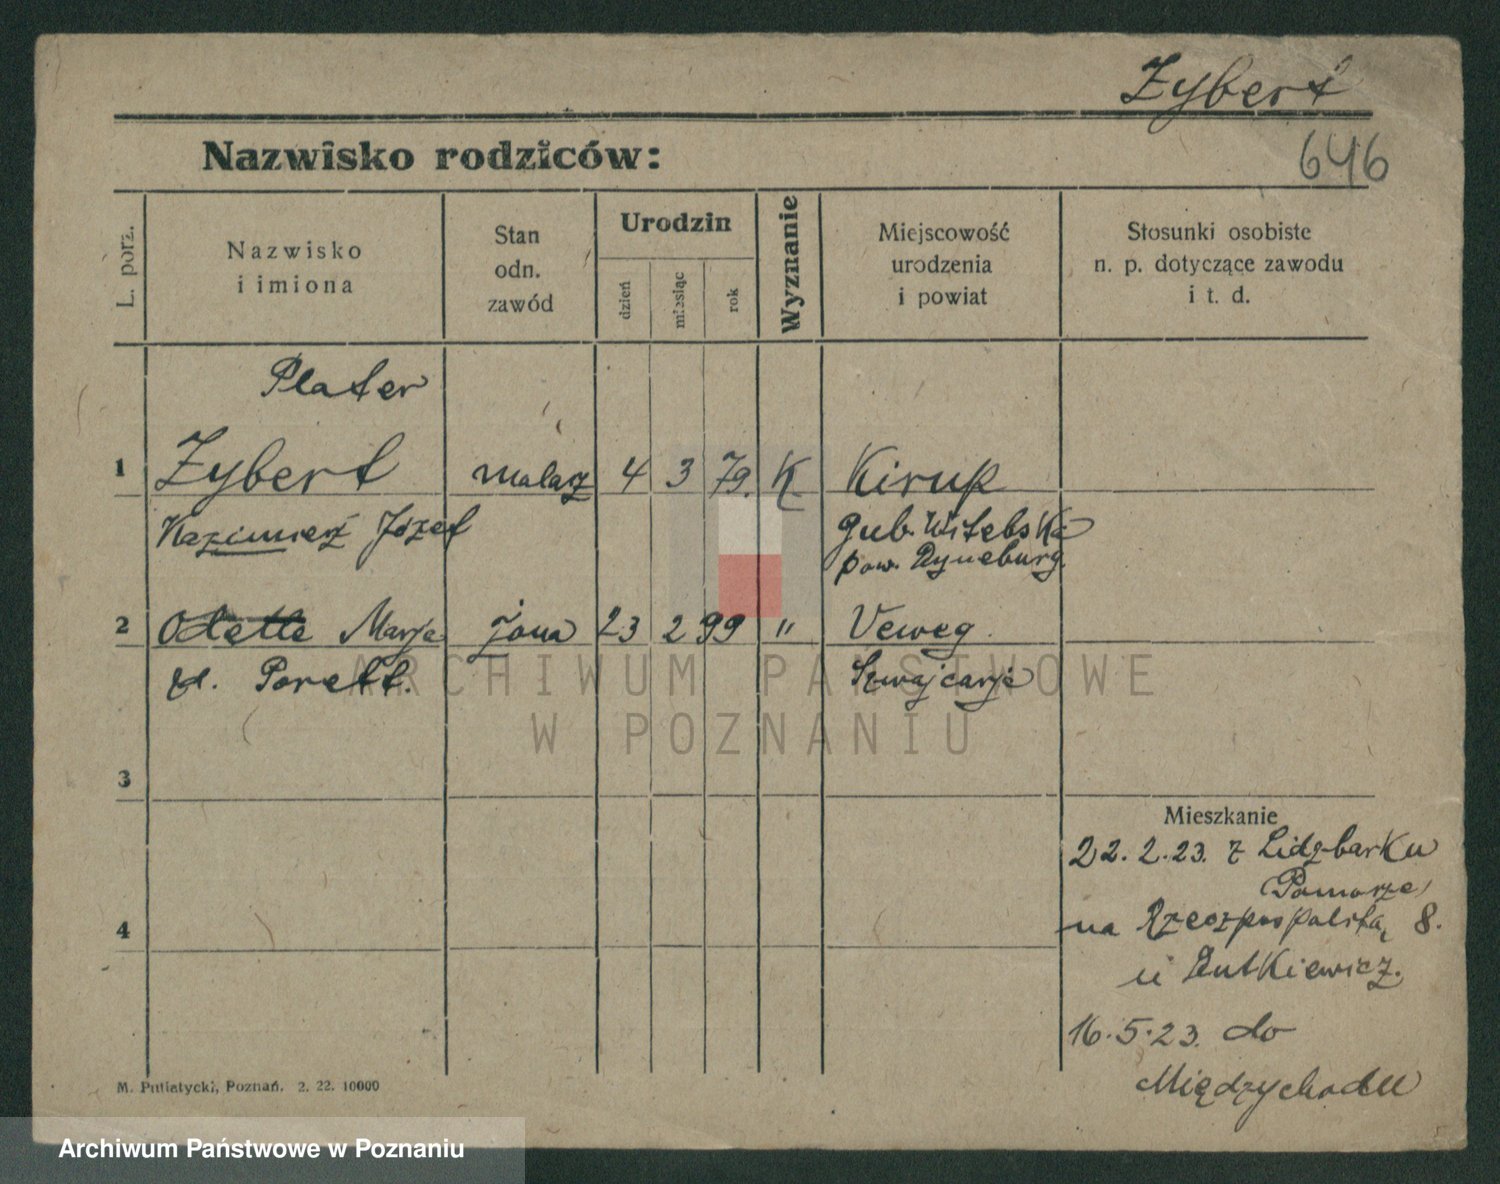 Zybert
646
Nazwisko rodziców:
L. porz.
Nazwisko
i imiona
Stan
odn.
zawód
Urodzin
dzień
miesiąc
rok
Wyznanie
Miejscowość
urodzenia
i powiat
Stosunki osobiste
n. p. dotyczące zawodu
i t. d.
Plater
1 Zybert malarz 4 3 79. K. Kirup
Kazimierz Józef gub. Witebska
pow. Dyneburg.
2 Odette Marja żona 23 2 99 " Veweg
d. Porett. Szwajcarja
3
Mieszkanie
22. 2. 23. z Lidzbarku
Pomorze
4 na Rzeczpospolitą 8.
u Rutkiewicz.
16. 5. 23. do
Międzychodu
M. Putiatycki, Poznań. 2. 22. 10000
ARCHIWUM PAŃSTWOWE
W POZNANIU
Archiwum Państwowe w Poznaniu